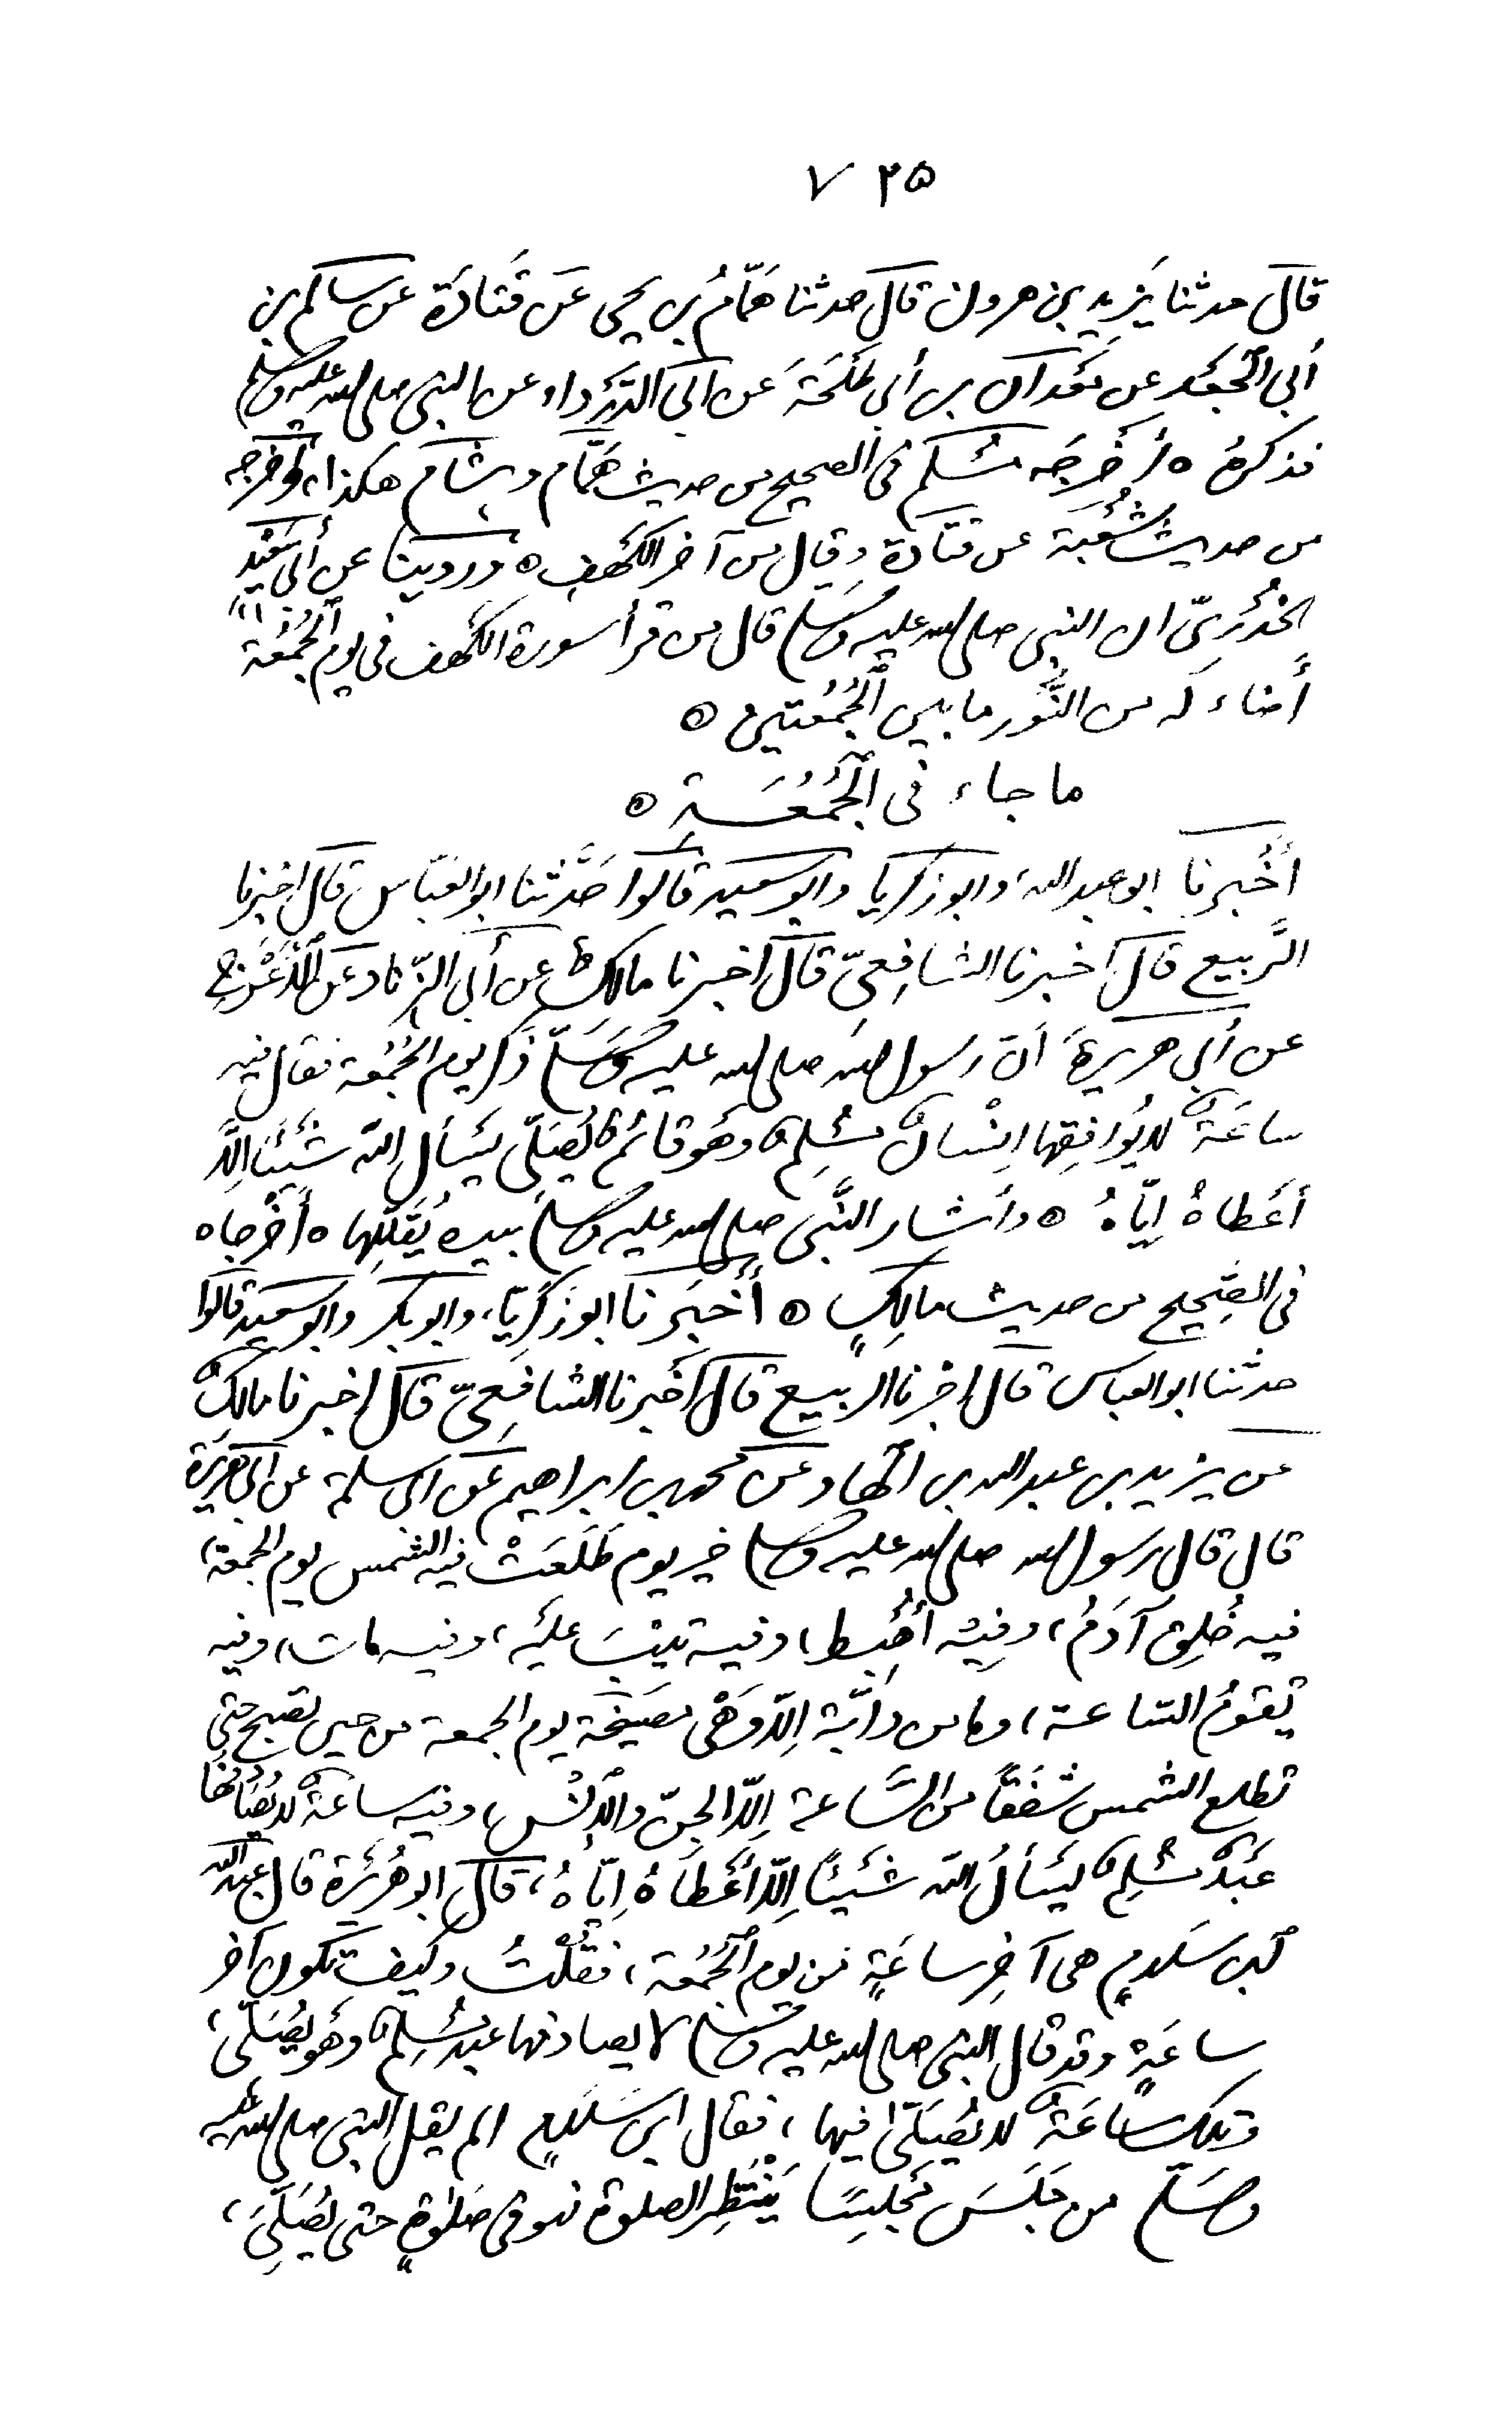 ٧٢٥
قال حدثنا يَزِيد بن هرون قال حدثنا هَمَّامُ بن يحيى عَن قَتادَة عن سالم بن
أبي الجَعْد عن مَعْدان بن أبي طَلْحَةَ عن ابى الدَّرْداء عن النبى صلى الله عليه وسلم
فذكرهُ ٥ أخْرَجَه مُسْلم فى الصحيح من حديث هَمّام وهِشام هكذا، وأخرجه
من حديث شُعْبَة عن قتادة وقال من آخر الكَهْف ٥ وروينا عن أبى سَعْيد
الخُدْرِىّ ان النبى صلى الله عليه وسَلم قال من قرأ سورة الكهف فى يوم الجُمُعَة
أضاء لَه من النُّور ما بين الجُمُعتين ٥
ما جاء فى الجُمُعَـة ٥
أَخْبرنا ابو عبد الله، وابو زكريا وابو سعيد قالوا حَدَّثنا ابو العَبّاس قال اخبرنا
الرَّبيع قال اخبرنا الشافِعىّ قال اخبرنا مالكٌ عن أبى الزِّناد عَن الأعْرَج
عن أبى هريرةَ أنّ رسول الله صلى الله عليه وسَلّم ذَكر يوم الجُمُعَة فقال فيه
ساعَةٌ لا يُوافِقها اِنْسانٌ مُسْلِمٌ وهُو قائمٌ يُصَلّى يَسْأل الله شَيْئًا اِلاَّ
أعْطاهُ اِيّاهُ ٥ وأشار النَّبى صلى الله عليه وسلم بيده يُقَلّلها ٥ أخْرجاه
فى الصَّحِيح من حديث مالِكٍ ٥ أَخْبَرنا ابو زَكَرِيّا، وابو بكر وابو سَعيد قالوا
حدّثنا ابو العباس قال اخبرنا الربيع قال اخْبرنا الشافِعىّ قال اخبرنا مالِكٌ
عن يزيد بن عبد الله بن الهاد عن محمد بن ابراهيم عن ابى سلمة عن ابى هريرة
قال قال رسول الله صلى الله عليه وسلم خير يوم طَلَعَتْ فيه الشمس يوم الجمعة،
فيه خُلِق آدَمُ، وفِيْه اُهْبِط، وفيه تِيْبَ عليْه، وفيه مات، وفيه
تقومُ السّاعة، وما من دابَّة اِلاّ وَهْى مصِيْخة يوم الجمعة من حين تصبح حتى
تطلع الشمس شفَقًا من السَّاعة اِلاّ الجِنّ والاِنْس، وفيه ساعَةٌ لا يُصَادفُها
عَبْدٌ مُسْلِمٌ يَسْألُ الله شَيْئًا اِلاّ أعْطاهُ اِيّاهُ، قال ابو هُرَيْرَة قال عبد الله
ابن سَلامٍ هى آخِر ساعَةٍ من يوم الجُمُعَة، فقُلْتُ وكيفَ تكون آخر
ساعَةٍ وقد قال النبى صلى الله عليه وسلم لا يصادفها عبد مُسْلِمٌ وهُو يُصَلّى،
وتلك ساعَةٌ لا يُصَلّى فيها، فقال ابن سَلامٍ الم يقل النبى صلى الله عليه
وسَلّم من جَلَسَ مَجْلِسًا يَنْتَظِر الصلوة فهو فى صَلوةٍ حتى يُصَلِّىَ،